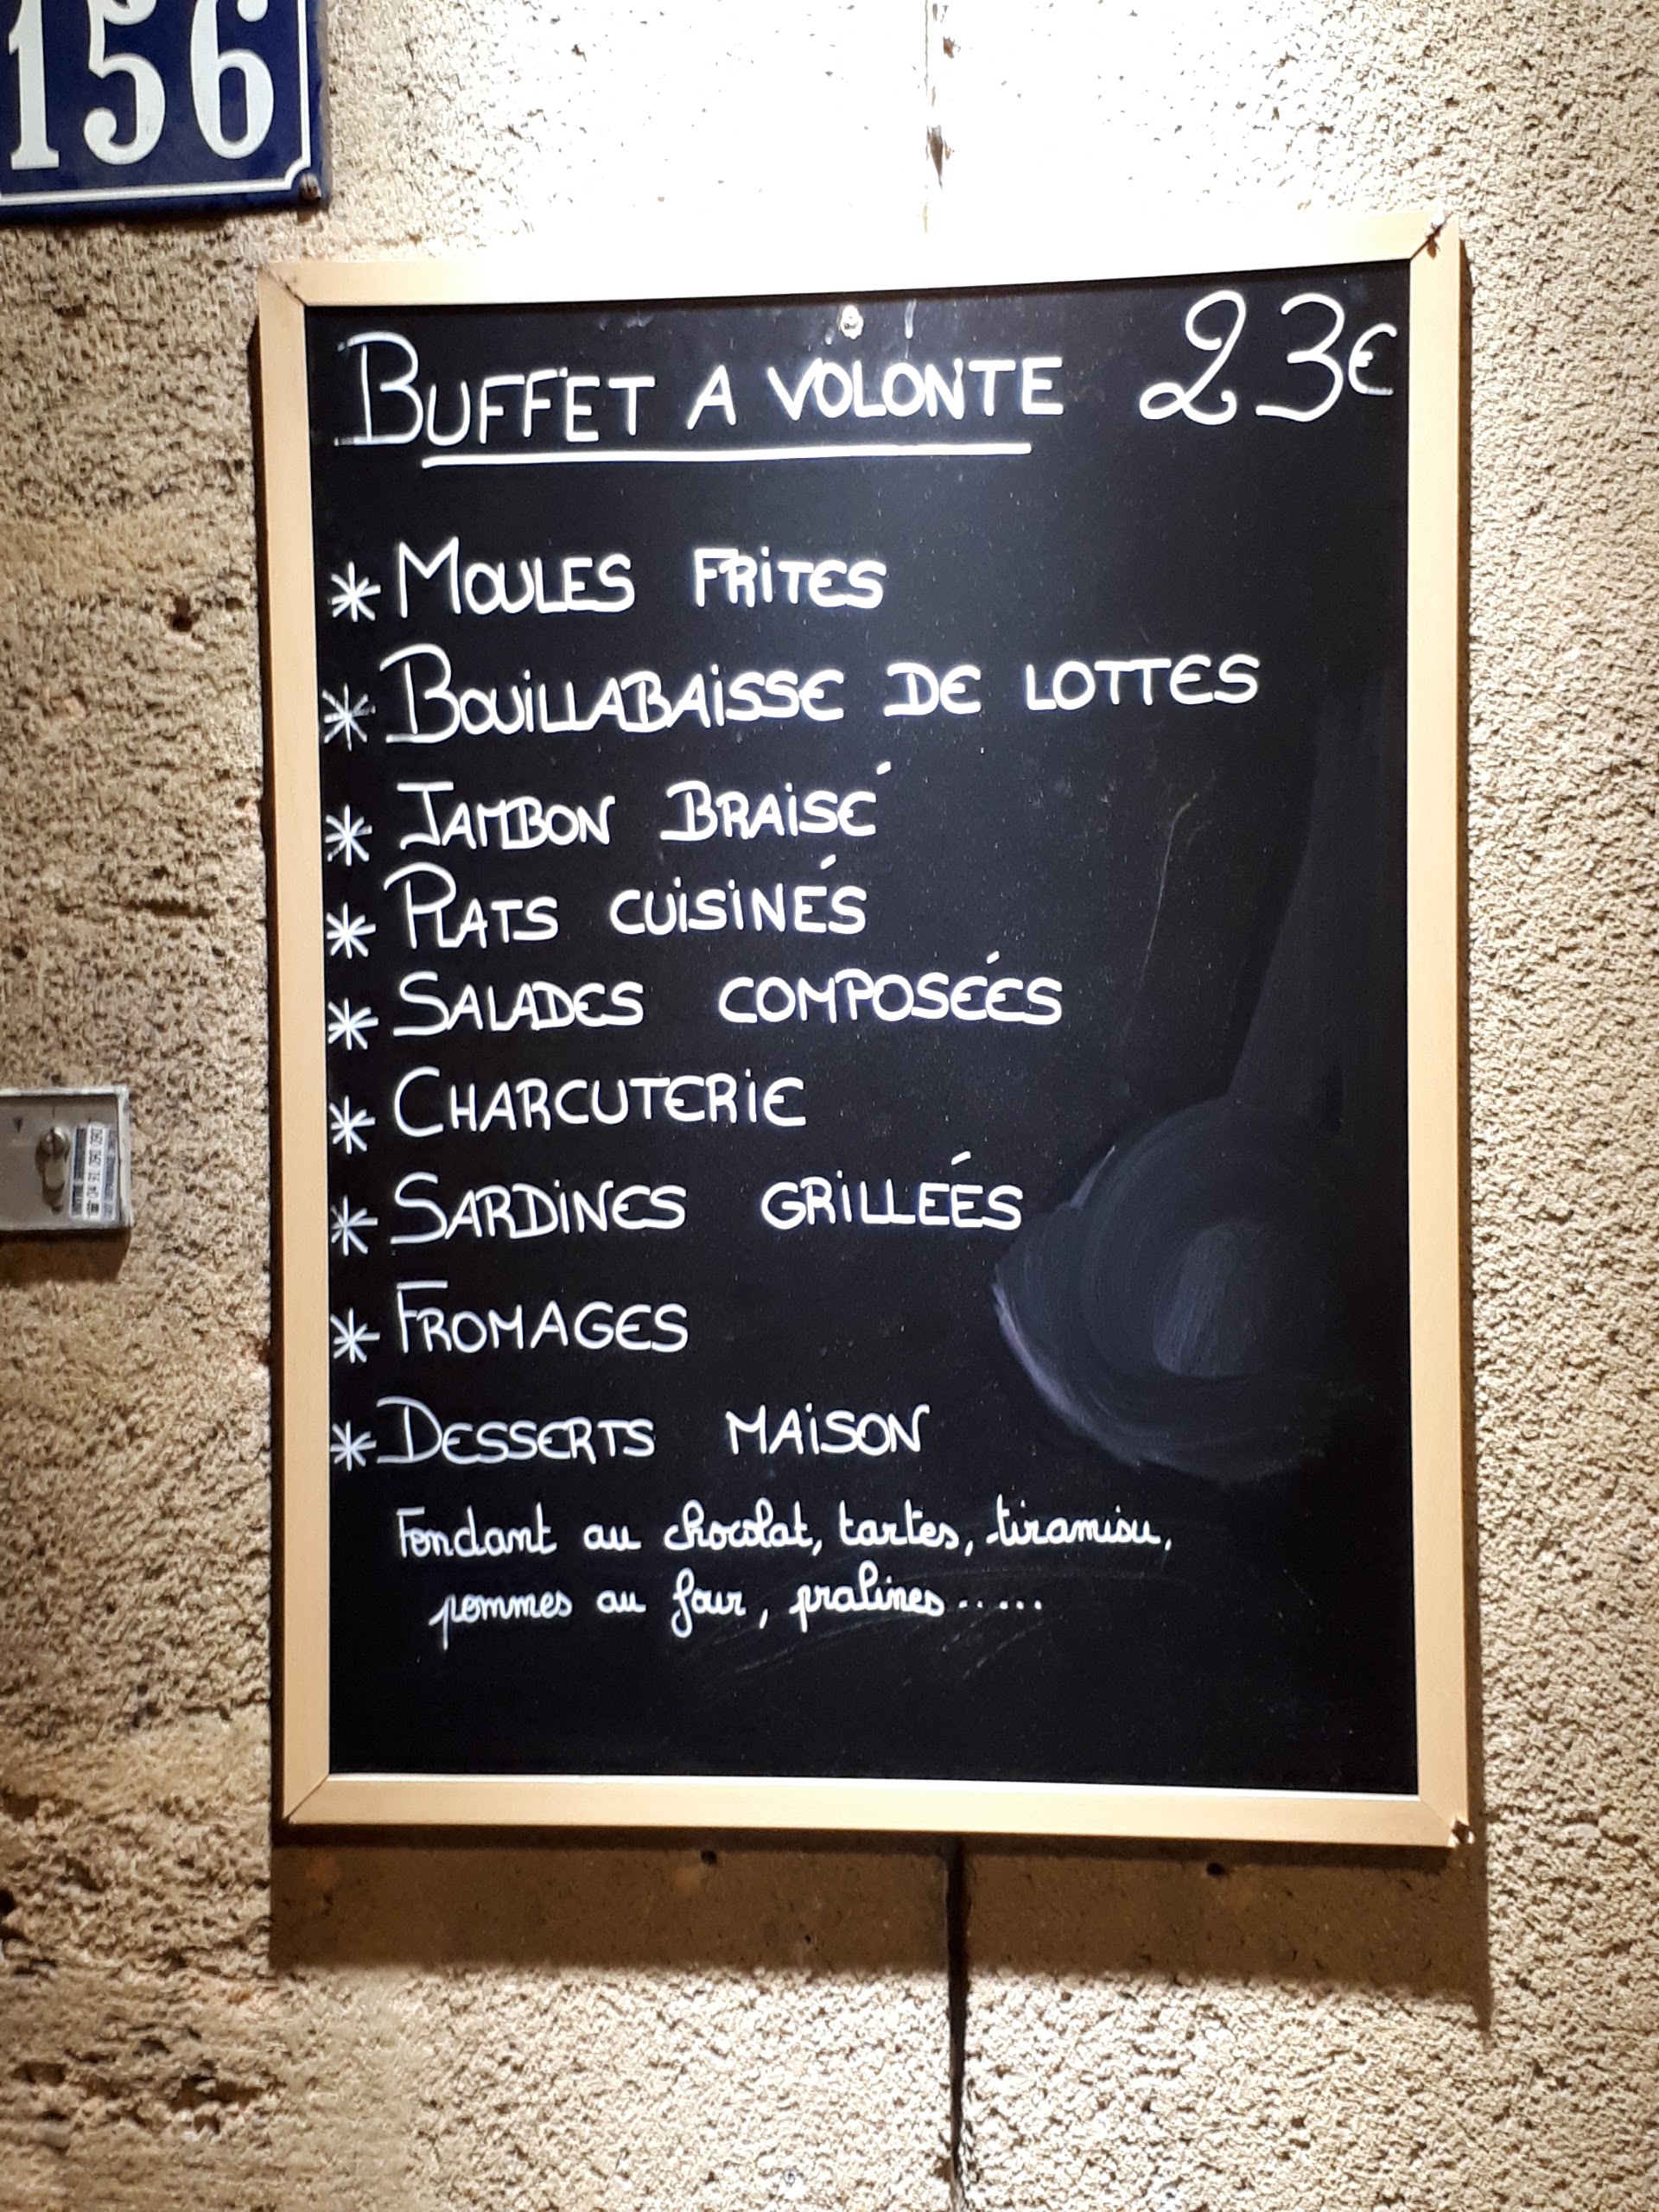 156
BUFFET A VOLONTE 23€
* MOULES FRITES
* BOUILLABAISSE DE LOTTES
* JAMBON BRAISÉ
* PLATS CUISINÉS
* SALADES COMPOSÉES
* CHARCUTERIE
* SARDINES GRILLÉES
* FROMAGES
* DESSERTS MAISON
Fondant au chocolat, tartes, tiramisu,
pommes au four, pralines.....